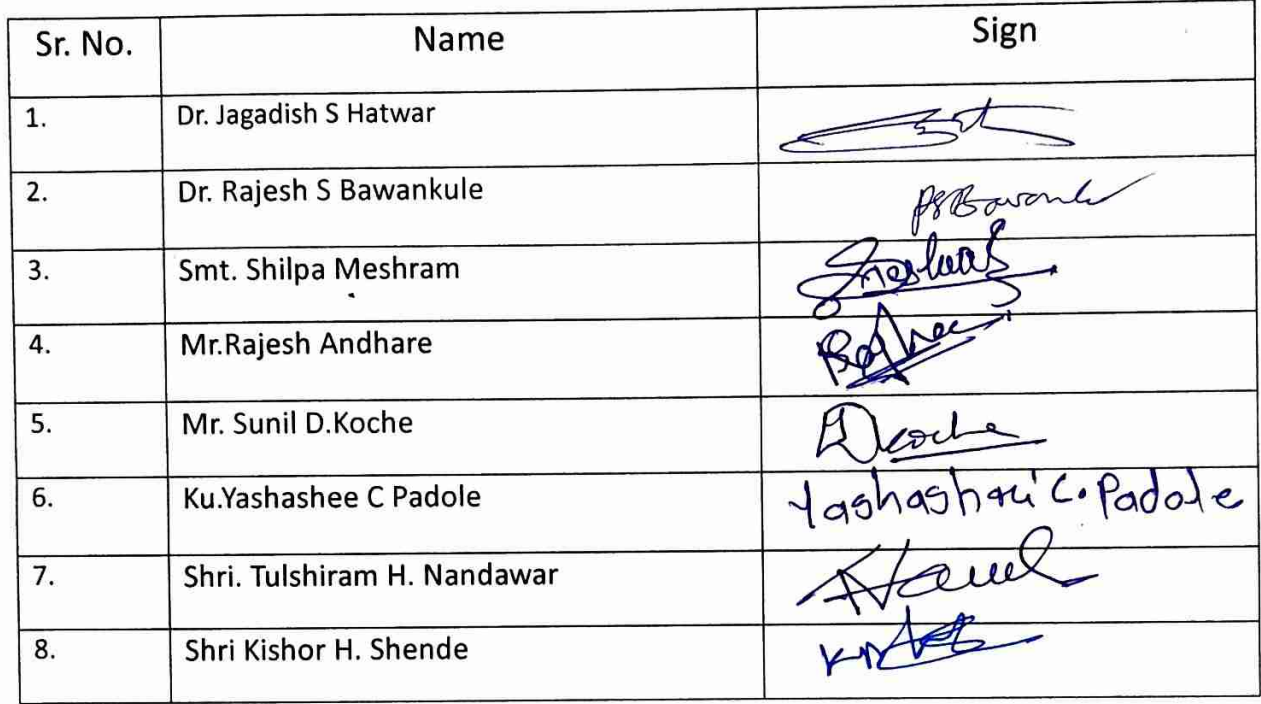 Sr. No. Name Sign
1. Dr. Jagadish S Hatwar
2. Dr. Rajesh S Bawankule RSBawankule
3. Smt. Shilpa Meshram
4. Mr.Rajesh Andhare
5. Mr. Sunil D.Koche Koche
6. Ku.Yashashee C Padole Yashashri C. Padole
7. Shri. Tulshiram H. Nandawar
8. Shri Kishor H. Shende